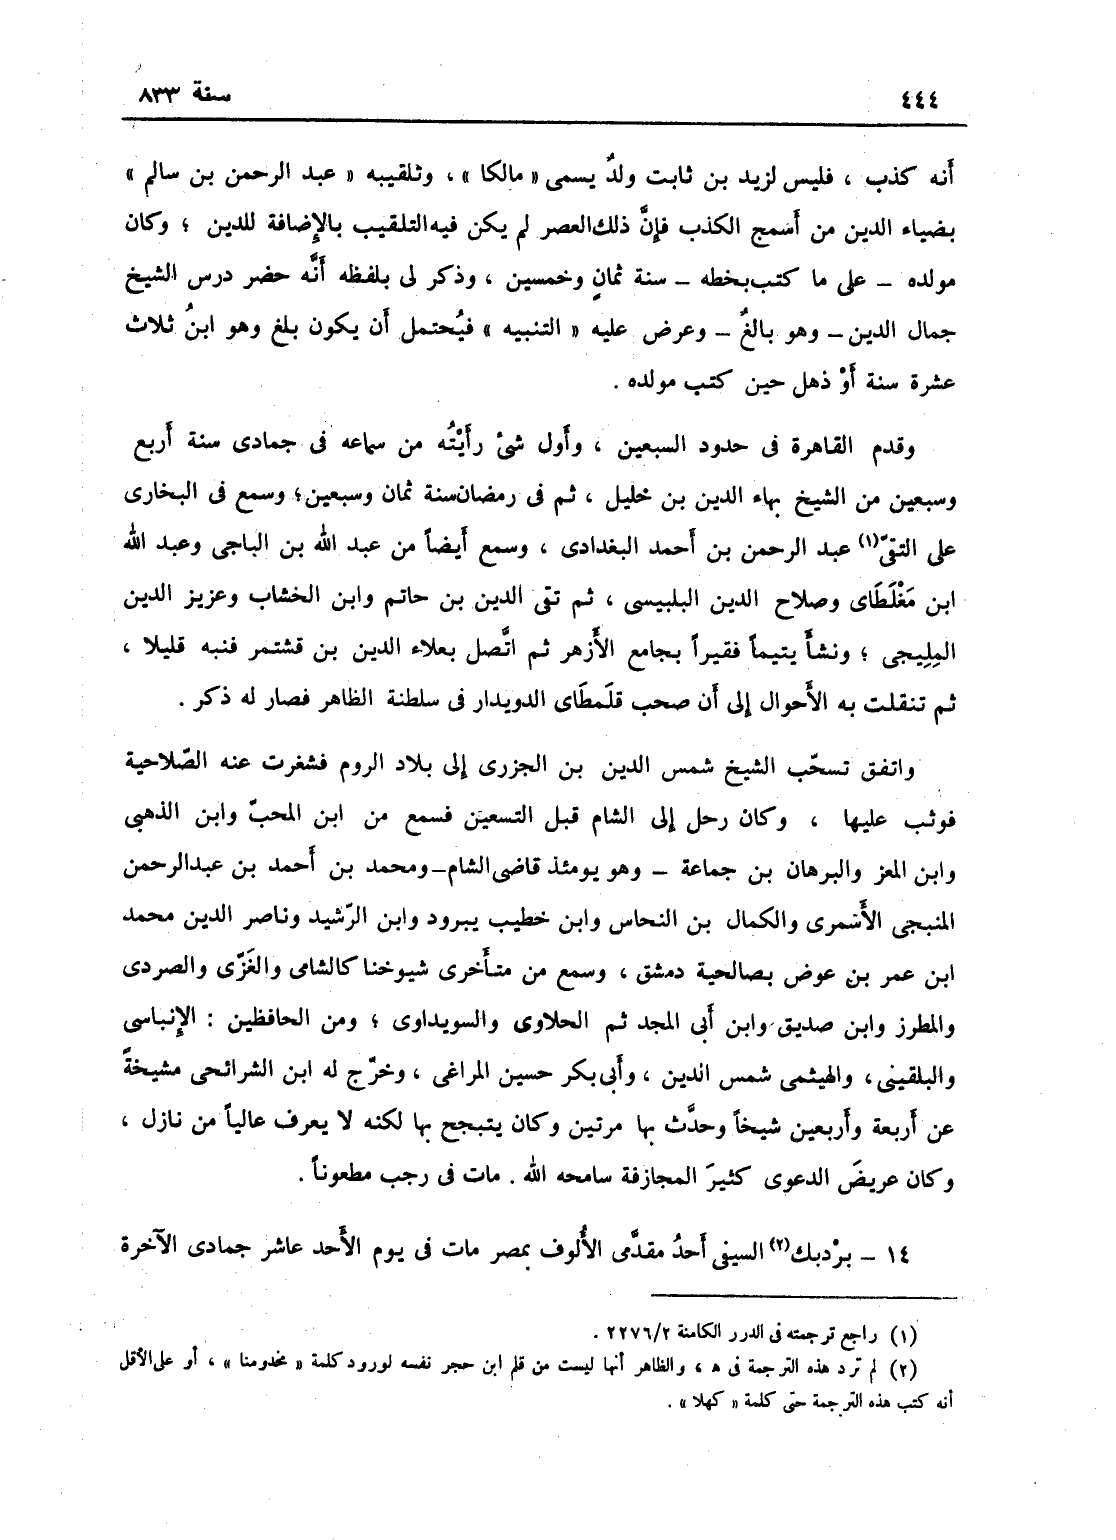 ٤٤٤
سنة ٨٣٣
أنه كذب ، فليس لزيد بن ثابت ولدٌ يسمى « مالكا » ، وتلقيبه « عبد الرحمن بن سالم »
بضياء الدين من أسمج الكذب فإنَّ ذلك العصر لم يكن فيه التلقيب بالإضافة للدين ؛ وكان
مولده – على ما كتب بخطه – سنة ثمانٍ وخمسين ، وذكر لى بلفظه أنَّه حضر درس الشيخ
جمال الدين – وهو بالغٌ – وعرض عليه « التنبيه » فيُحتمل أن يكون بلغ وهو ابنُ ثلاث
عشرة سنة أوْ ذهل حين كتب مولده .
وقدم القاهرة فى حدود السبعين ، وأول شئ رأيْتُه من سماعه فى جمادى سنة أربع
وسبعين من الشيخ بهاء الدين بن خليل ، ثم فى رمضان سنة ثمان وسبعين ؛ وسمع فى البخارى
على التقىّ(١) عبد الرحمن بن أحمد البغدادى ، وسمع أيضاً من عبد الله بن الباجى وعبد الله
ابن مَغْلَطَاى وصلاح الدين البلبيسى ، ثم تقى الدين بن حاتم وابن الخشاب وعزيز الدين
المِلِيجى ؛ ونشأ يتيماً فقيراً بجامع الأزهر ثم اتَّصل بعلاء الدين بن قشتمر فنبه قليلا ،
ثم تنقلت به الأحوال إلى أن صحب قلَمطَاى الدويدار فى سلطنة الظاهر فصار له ذكر .
واتفق تسحّب الشيخ شمس الدين بن الجزرى إلى بلاد الروم فشغرت عنه الصّلاحية
فوثب عليها ، وكان رحل إلى الشام قبل التسعين فسمع من ابن المحبّ وابن الذهبى
وابن المعز والبرهان بن جماعة – وهو يومئذ قاضى الشام – ومحمد بن أحمد بن عبدالرحمن
المنبجى الأسمرى والكمال بن النحاس وابن خطيب يبرود وابن الرّشيد وناصر الدين محمد
ابن عمر بن عوض بصالحية دمشق ، وسمع من متأخرى شيوخنا كالشامى والغَزّى والصردى
والمطرز وابن صديق وابن أبى المجد ثم الحلاوى والسويداوى ؛ ومن الحافظين : الإنباسى
والبلقينى ، والهيثمى شمس الدين ، وأبى بكر حسين المراغى ، وخرّج له ابن الشرائحى مشيخةً
عن أربعة وأربعين شيخاً وحدَّث بها مرتين وكان يتبجح بها لكنه لا يعرف عالياً من نازل ،
وكان عريضَ الدعوى كثيرَ المجازفة سامحه الله . مات فى رجب مطعوناً .
١٤ – برْدبك(٢) السيفى أحدُ مقدَّمى الأُلوف بمصر مات فى يوم الأحد عاشر جمادى الآخرة
(١) راجع ترجمته فى الدرر الكامنة ٢/٢٢٧٦ .
(٢) لم ترد هذه الترجمة فى ھ ، والظاهر أنها ليست من قلم ابن حجر نفسه لورود كلمة « مخدومنا » ، أو على الأقل
أنه كتب هذه الترجمة حتى كلمة « كهلا » .